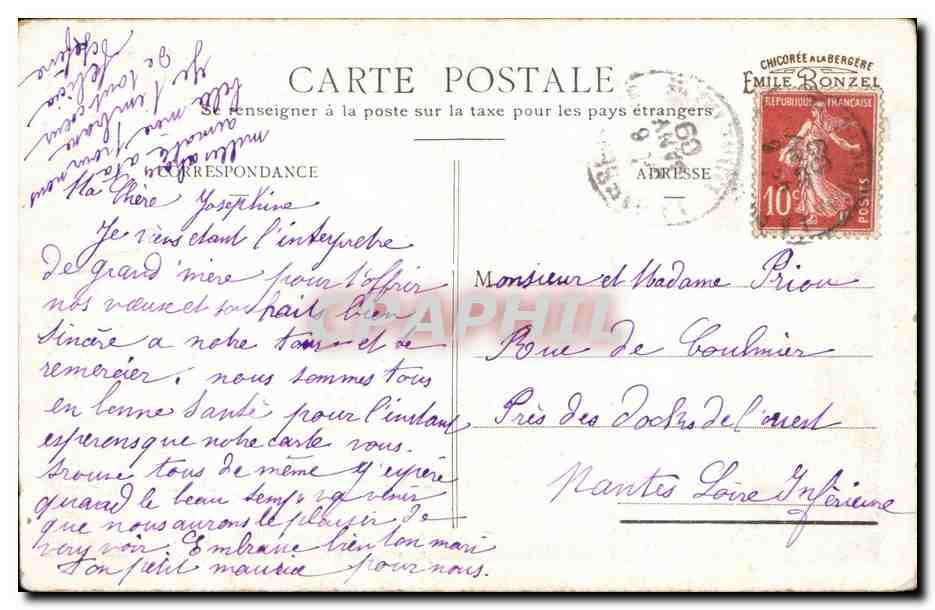 CARTE POSTALE
Se renseigner à la poste sur la taxe pour les pays étrangers
CORRESPONDANCE
ADRESSE
CHICORÉE A LA BERGÈRE
EMILE BONZEL
REPUBLIQUE FRANÇAISE
10c
POSTES
Ma Chère Josephine
Je viens etant l'interpretre
de grand'mère pour t'offrir
nos voeux et souhaits bien
sincère a notre tour et te
remercier. nous sommes tous
en bonne Santé pour l'instant
esperens que notre carte vous
trouve tous de même J'espère
quand le beau temps va venir
que nous aurons le plaisir de
voir. Embrasse bien ton mari
ton petit maurice pour nous.
mille
amitié a ta pour nous
belle mère
Je t'embrasse
De tout coeur
Monsieur et Madame Priou
Rue de Coulmier
Près des docks de l'ouest
Nantes Loire Inférieure
CPAPHIL